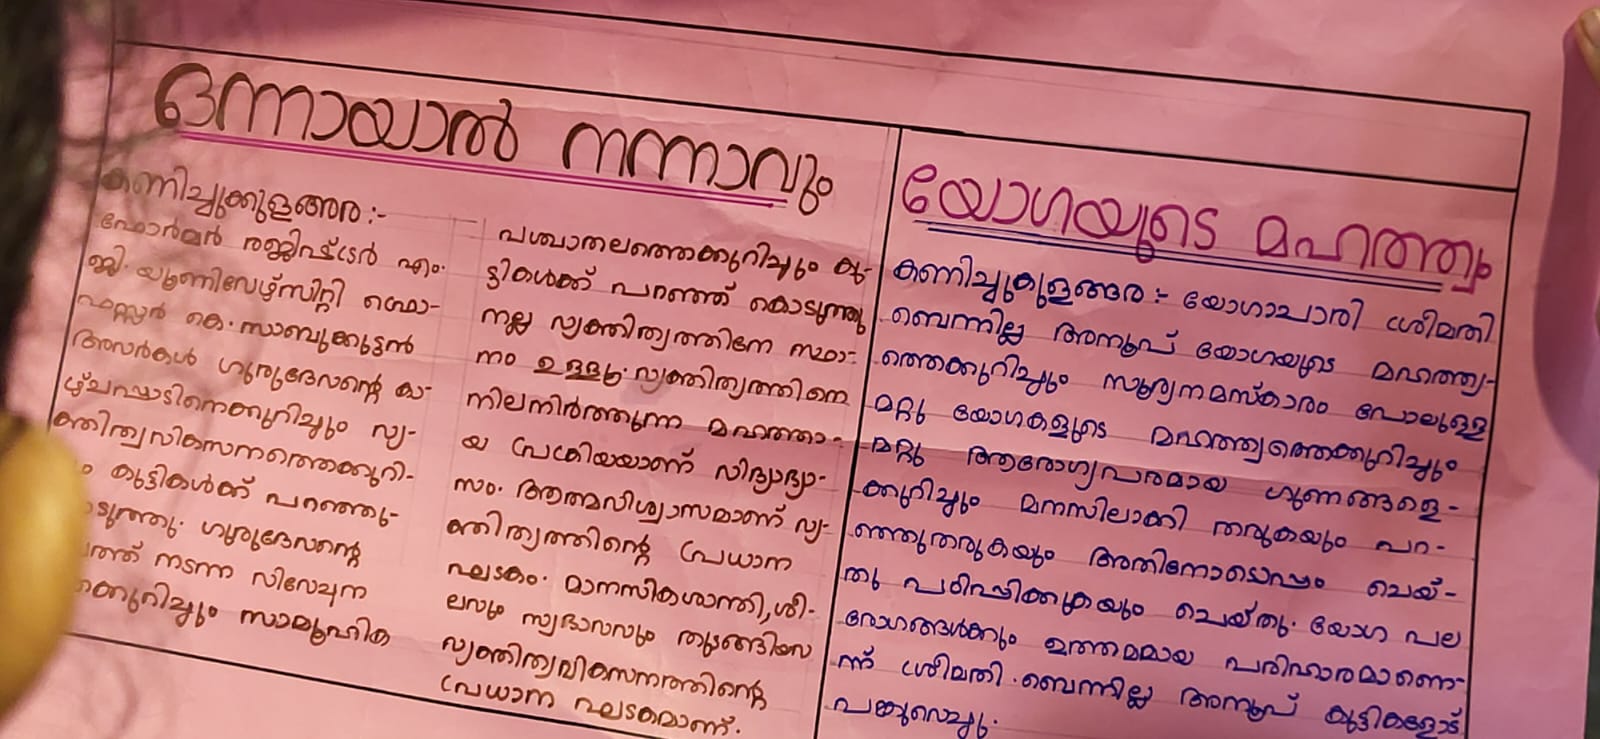 ഒന്നായാൽ നന്നാവും
കണിച്ചുക്കുളങ്ങര :-
ഫോർമർ രജിഷ്ട്രേർ എം.
ജി. യൂണിവേഴ്സിറ്റി പ്രൊ-
ഫസ്സർ കെ. സാബുക്കുട്ടൻ
അവർകൾ ഗുരുദേവന്റെ കാ-
ഴ്ചപ്പാടിനെക്കുറിച്ചും വ്യ-
ക്തിത്വവികസനത്തെക്കുറി-
കുട്ടികൾക്ക് പറഞ്ഞു-
ഗുരുദേവന്റെ
നടന്ന വിവേചന
സാമൂഹിക
പശ്ചാതലത്തെക്കുറിച്ചും കു-
ട്ടികൾക്ക് പറഞ്ഞ് കൊടുത്തു
നല്ല വ്യക്തിത്വത്തിനേ സ്ഥാ-
നം ഉള്ളൂ. വ്യക്തിത്വത്തിനെ
നിലനിർത്തുന്ന മഹത്താ-
യ പ്രക്രിയയാണ് വിദ്യാഭ്യാ-
സം. ആത്മവിശ്വാസമാണ് വ്യ-
ക്തിത്വത്തിന്റെ പ്രധാന
ഘടകം. മാനസികശാന്തി, ശീ-
ലവും സ്വഭാവവും തുടങ്ങിയവ
വ്യക്തിത്വവികസനത്തിന്റെ
പ്രധാന ഘടകമാണ്.
യോഗയുടെ മഹത്ത്വം
കണിച്ചുകുളങ്ങര :- യോഗാചാരി ശ്രീമതി
ബെന്നില്ല അനൂപ് യോഗയുടെ മഹത്ത്വ-
ത്തെക്കുറിച്ചും സൂര്യനമസ്കാരം പോലുള്ള
മറ്റു യോഗകളുടെ മഹത്ത്വത്തെക്കുറിച്ചും
മറ്റു ആരോഗ്യപരമായ ഗുണങ്ങളെ-
ക്കുറിച്ചും മനസിലാക്കി തരുകയും പറ-
ഞ്ഞുതരുകയും അതിനോടൊപ്പം ചെയ്-
തു പഠിപ്പിക്കുകയും ചെയ്തു. യോഗ പല
രോഗങ്ങൾക്കും ഉത്തമമായ പരിഹാരമാണെ-
ന്ന് ശ്രീമതി. ബെന്നില്ല അനൂപ് കുട്ടികളോട്
പങ്കുവെച്ചു.